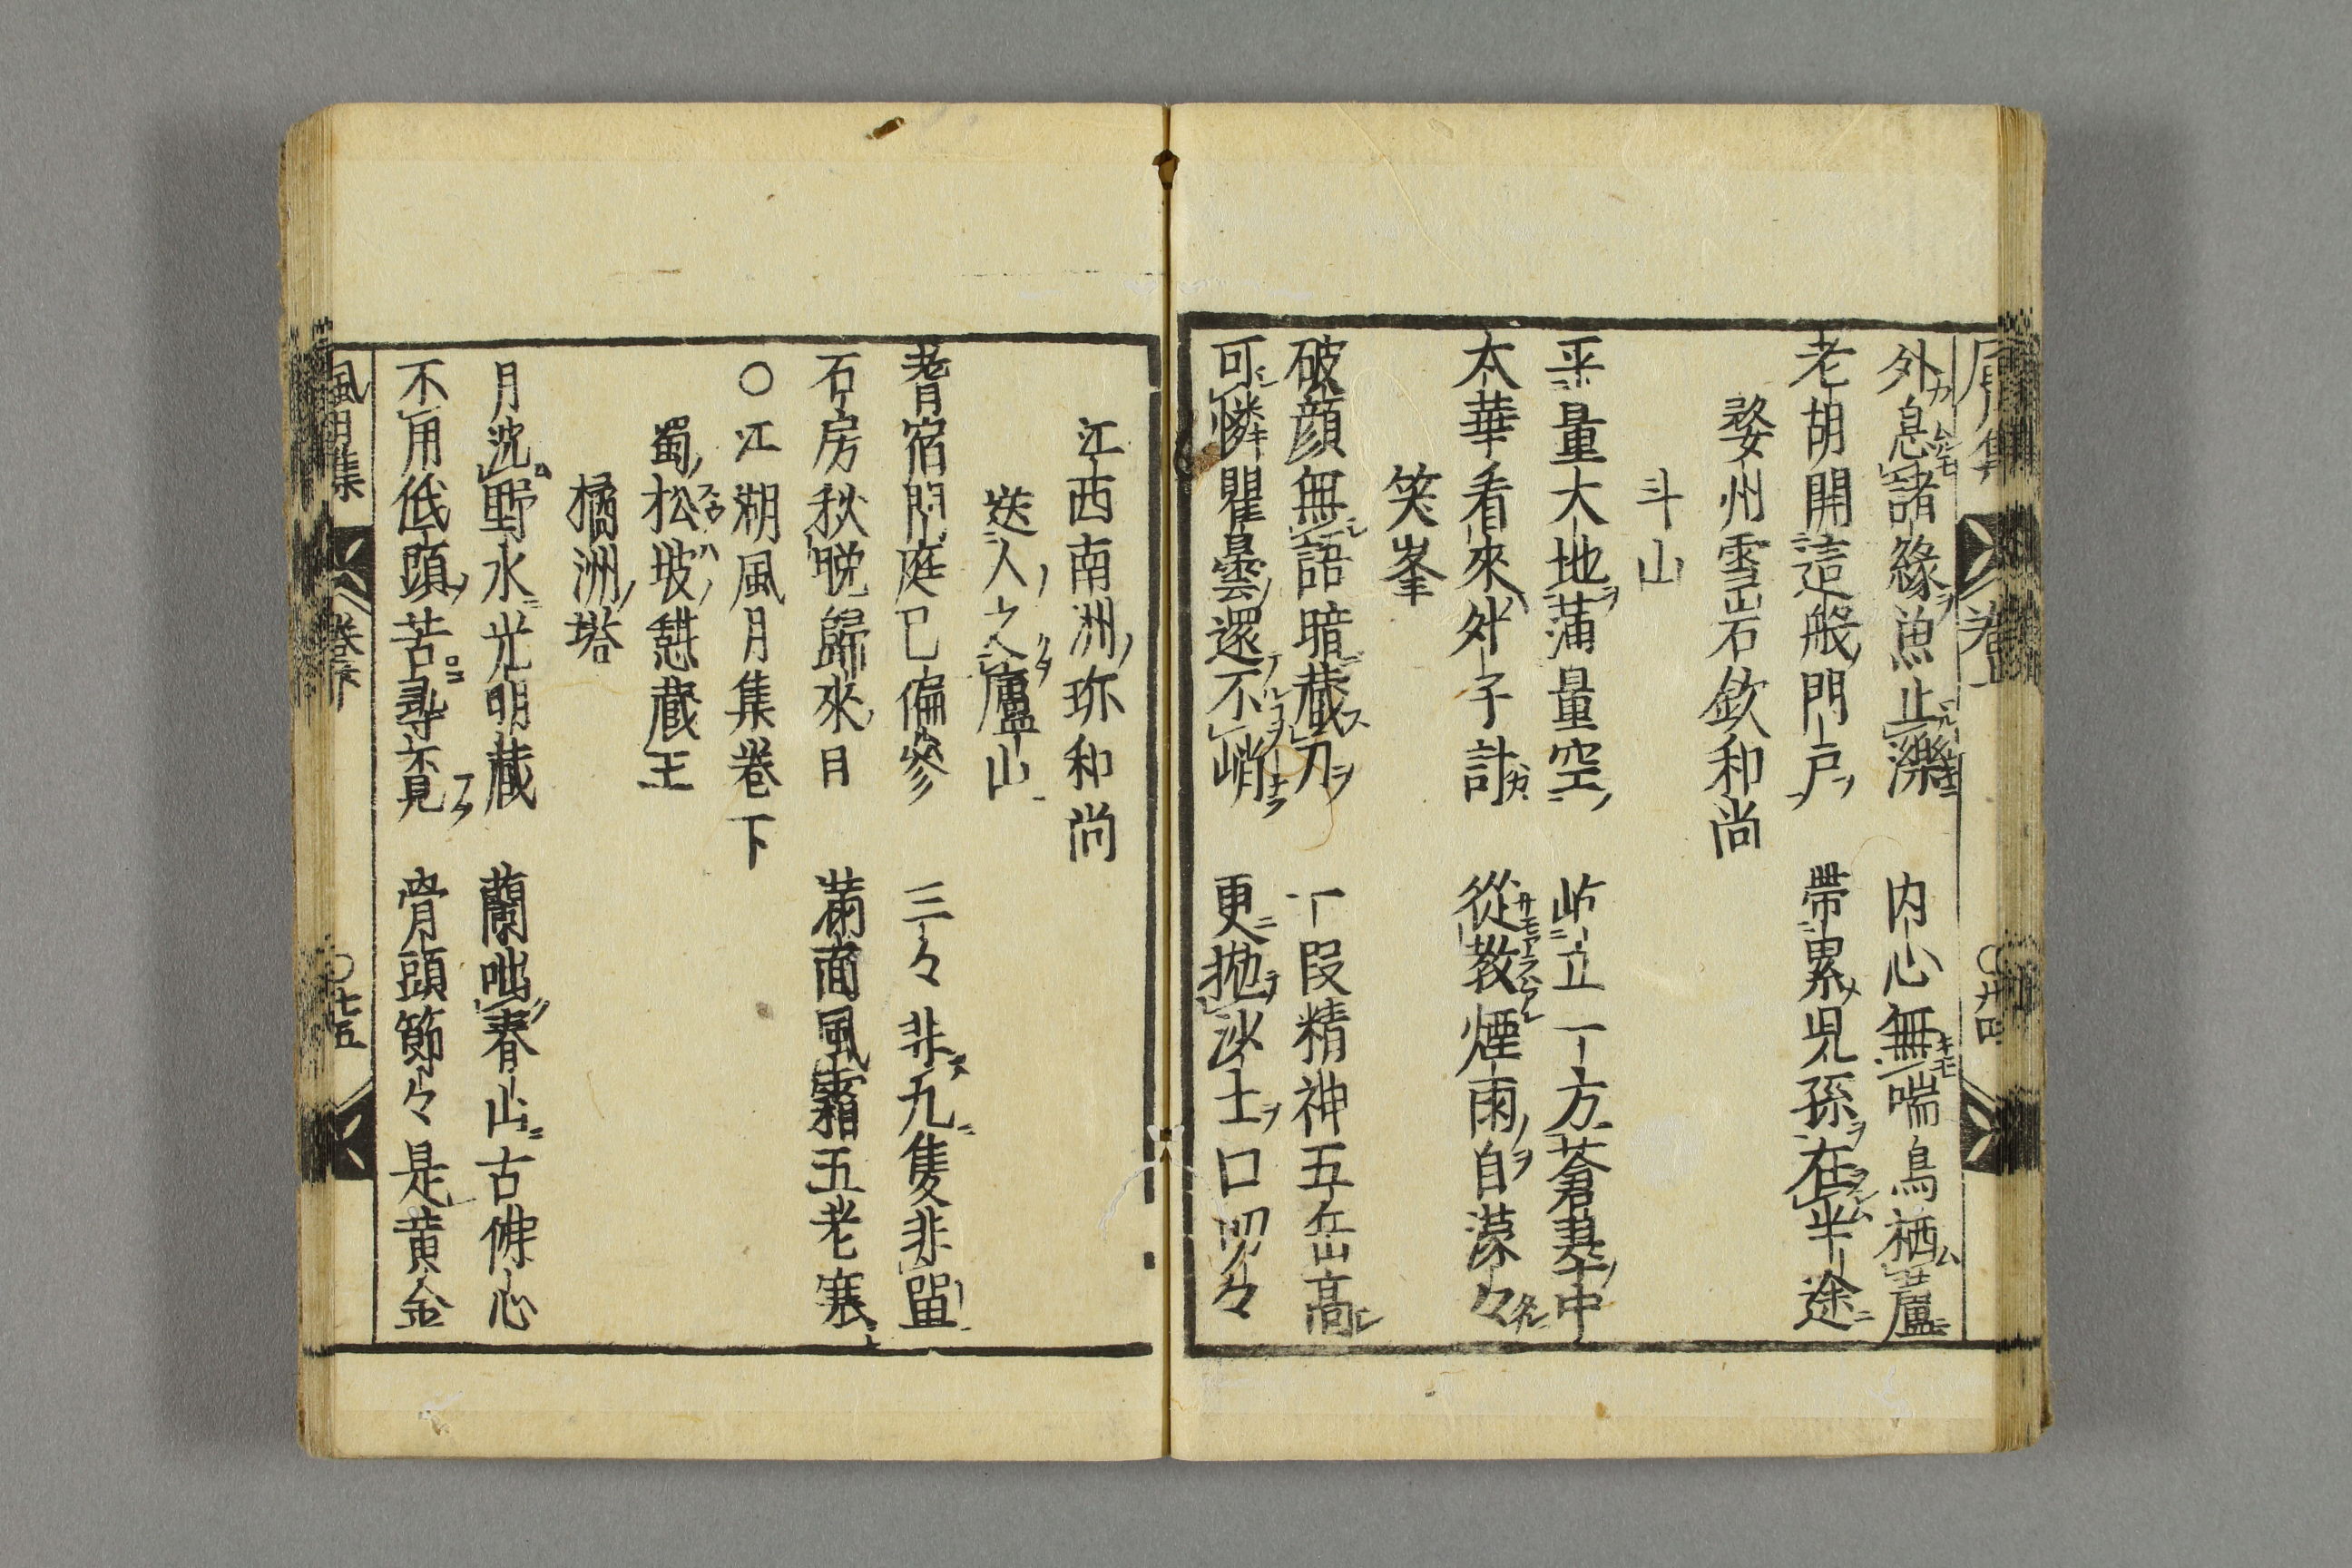 外息諸緣魚止濼 内心無喘鳥栖蘆
老胡開這般門戸 帶累児孫在半途
婺州雪岩欽和尚
斗山
平量大地蒲量空 屹立一方蒼莽中
太華看來外子計 從教煙雨自濛々
笑峯
破顔無語暗藏刀 一段精神五岳高
可憐瞿曇還不峭 更抛沙土口叨々
江西南洲珎和尚
送人之廬山
耆宿門庭已徧參 三々非九隻非單
石房秋晩歸來日 滿面風霜五老寒
〇江湖風月集巻下
蜀松坡憩藏主
橘洲塔
月沈野水光明藏 蘭吐春山古佛心
不用低頭苦尋覓 骨頭節々是黄金
風月集 巻下 〇七五